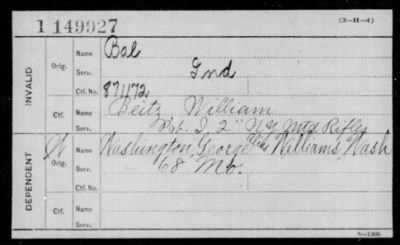 1 149927
(3-H-4)
INVALID
Orig.
Name
Bal
Serv.
Ind
Ctf. No.
871172
Ctf.
Name
Beitz William
Serv.
Pvt. I, 2" NY Mtd Rifles
DEPENDENT
Orig.
Name
Washington, George alias Williams, Wash
Serv.
68" Mo.
Ctf. No.
Ctf.
Name
Serv.